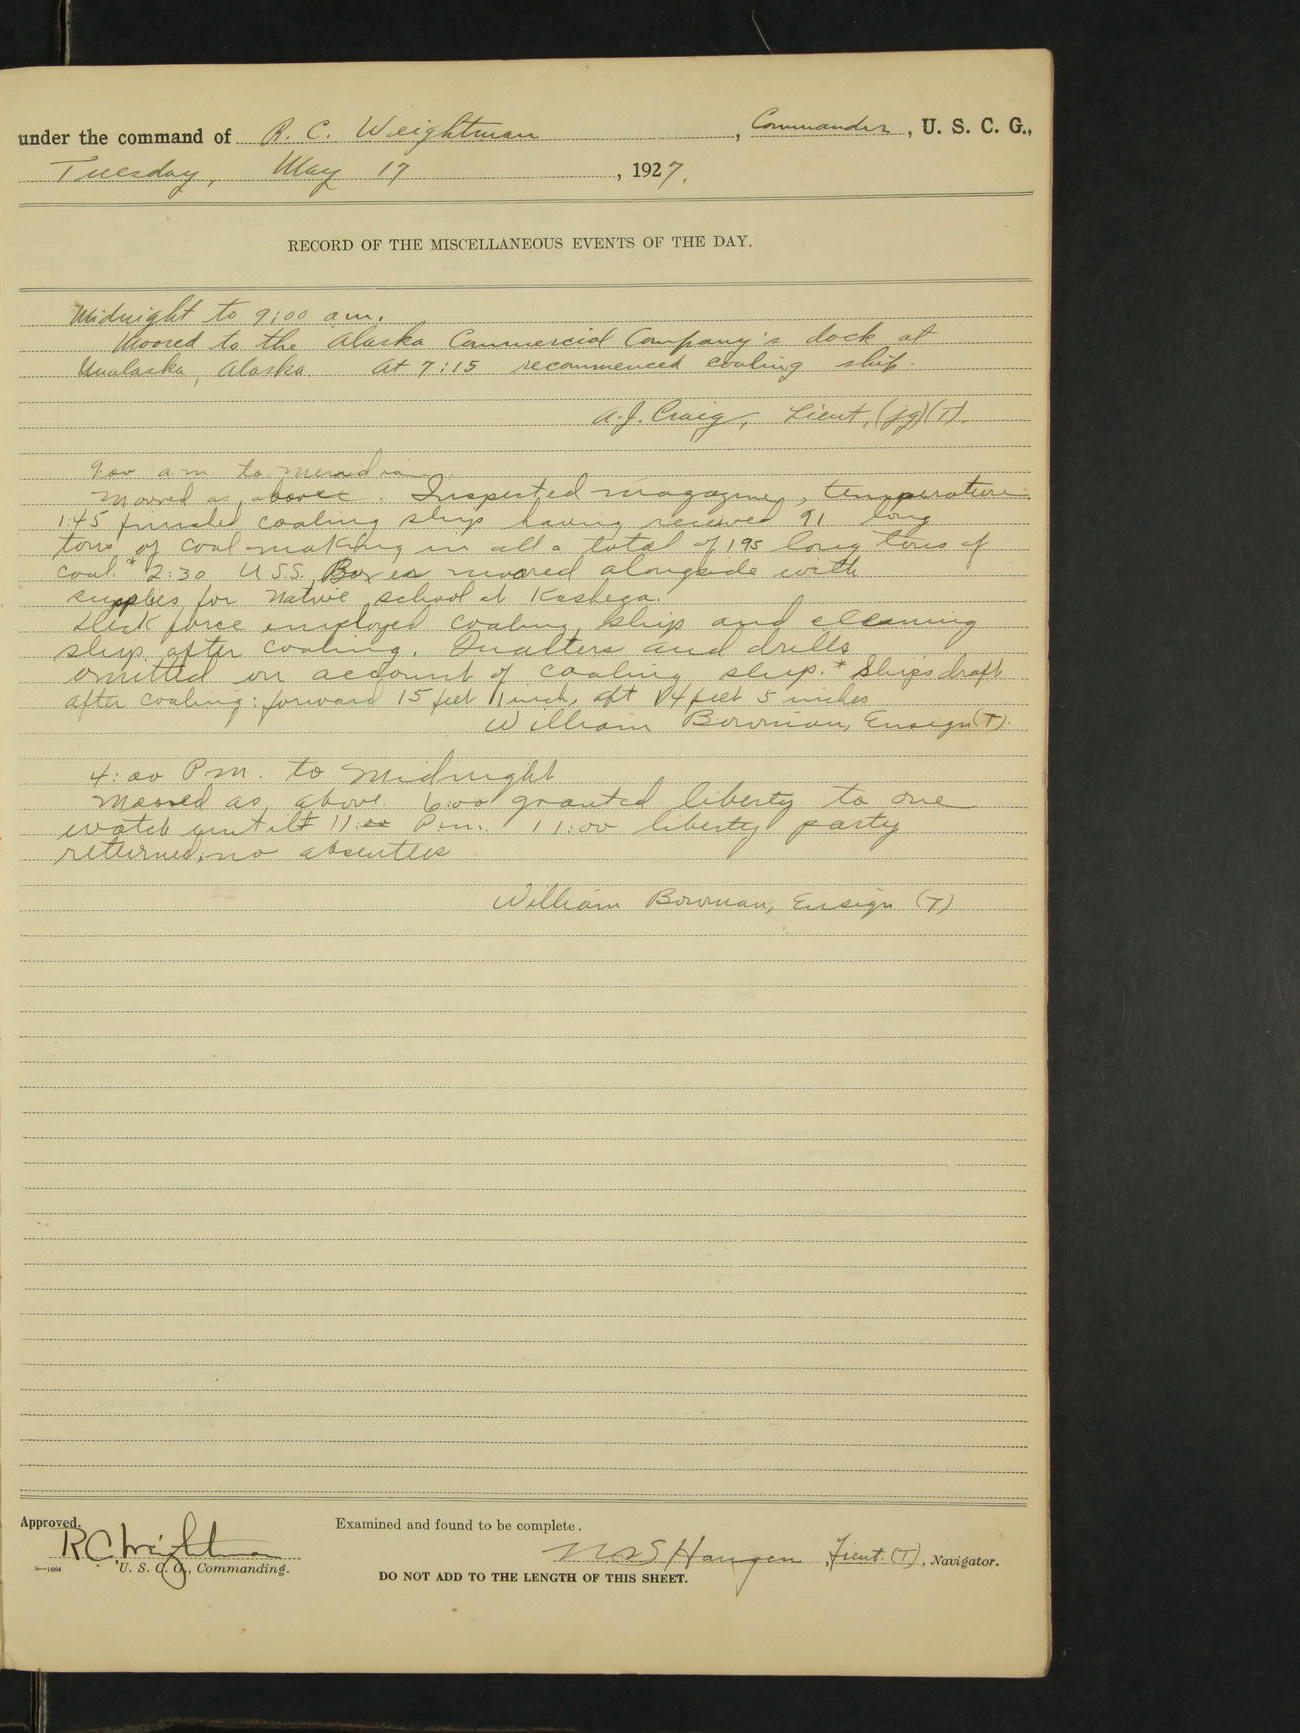 under the command of R. C. Weightman, Commander, U. S. C. G.,
Tuesday, May 17, 1927.
RECORD OF THE MISCELLANEOUS EVENTS OF THE DAY.
Midnight to 9:00 a.m.
Moored to the Alaska Commercial Company's dock at
Unalaska, Alaska. At 7:15 recommenced coaling ship.
A. J. Craig, Lieut, (jg)(T).
9:00 a.m. to meridian.
Moored as above. Inspected magazines, temperature
1:45 finished coaling ship having received 91 long
tons of coal making in all a total of 195 long tons of
coal. * 2:30 U.S.S. Boxer moored alongside with
supplies for Native school at Kashega.
Deck force employed coaling ship and cleaning
ship after coaling. Quarters and drills
omitted on account of coaling ship. * Ship's draft
after coaling: forward 15 feet 1 inch, aft 14 feet 5 inches
William Bowman, Ensign (T).
4:00 P.m. to Midnight
Moored as above. 6:00 granted liberty to one
watch until 11:00 P.m. 11:00 liberty party
returned; no absentees.
William Bowman, Ensign (T)
Approved.
Examined and found to be complete.
R C Weightman
Haugen, Lieut. (T), Navigator.
U. S. C. G., Commanding.
DO NOT ADD TO THE LENGTH OF THIS SHEET.